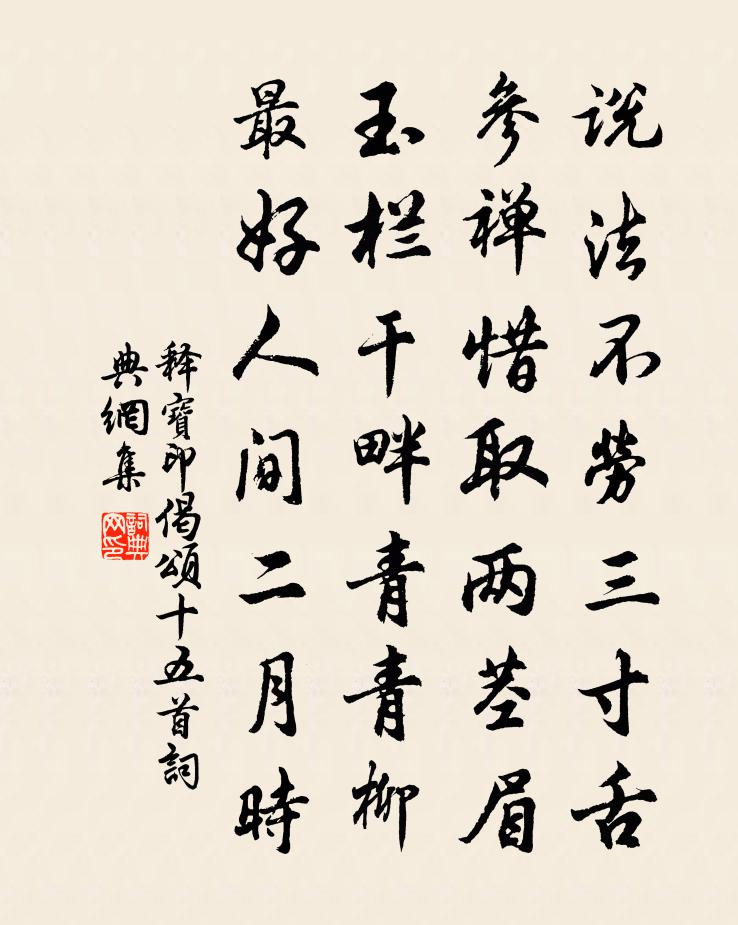 说法不劳三寸舌
参禅惜取两茎眉
玉栏干畔青青柳
最好人间二月時
释寶印偈頌十五首詞
典網集
詞典網印